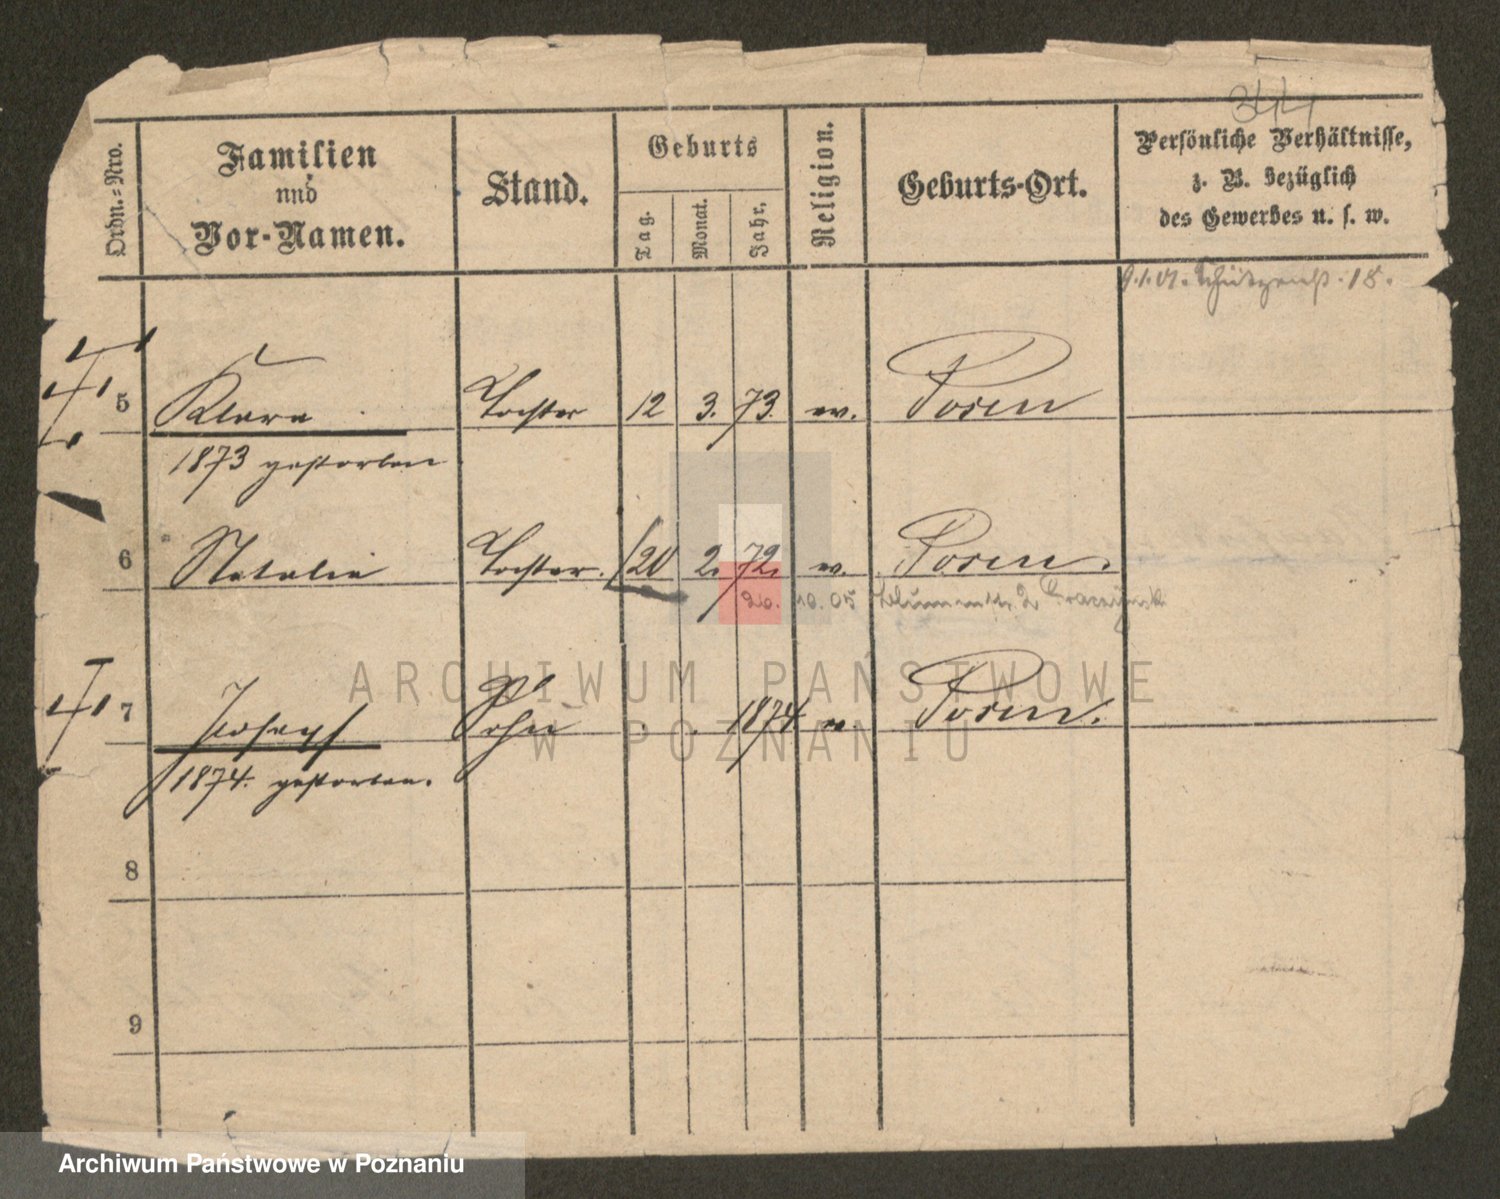 344
Ordn.=Nro.
Familien
und
Vor-Namen.
Stand.
Geburts
Tag.
Monat.
Jahr.
Religion.
Geburts-Ort.
Persönliche Verhältnisse,
z. B. bezüglich
des Gewerbes u. s. w.
9.1.01. 18.
5 Klara Tochter 12 3. 73. ev. Posen
1873 gestorben
6 Natalie Tochter. 20 2. 72. Posen.
26. 10. 05
7 Joseph Sohn 1874 Posen.
1874. gestorben.
8
9
ARCHIWUM PAŃSTWOWE
W POZNANIU
Archiwum Państwowe w Poznaniu